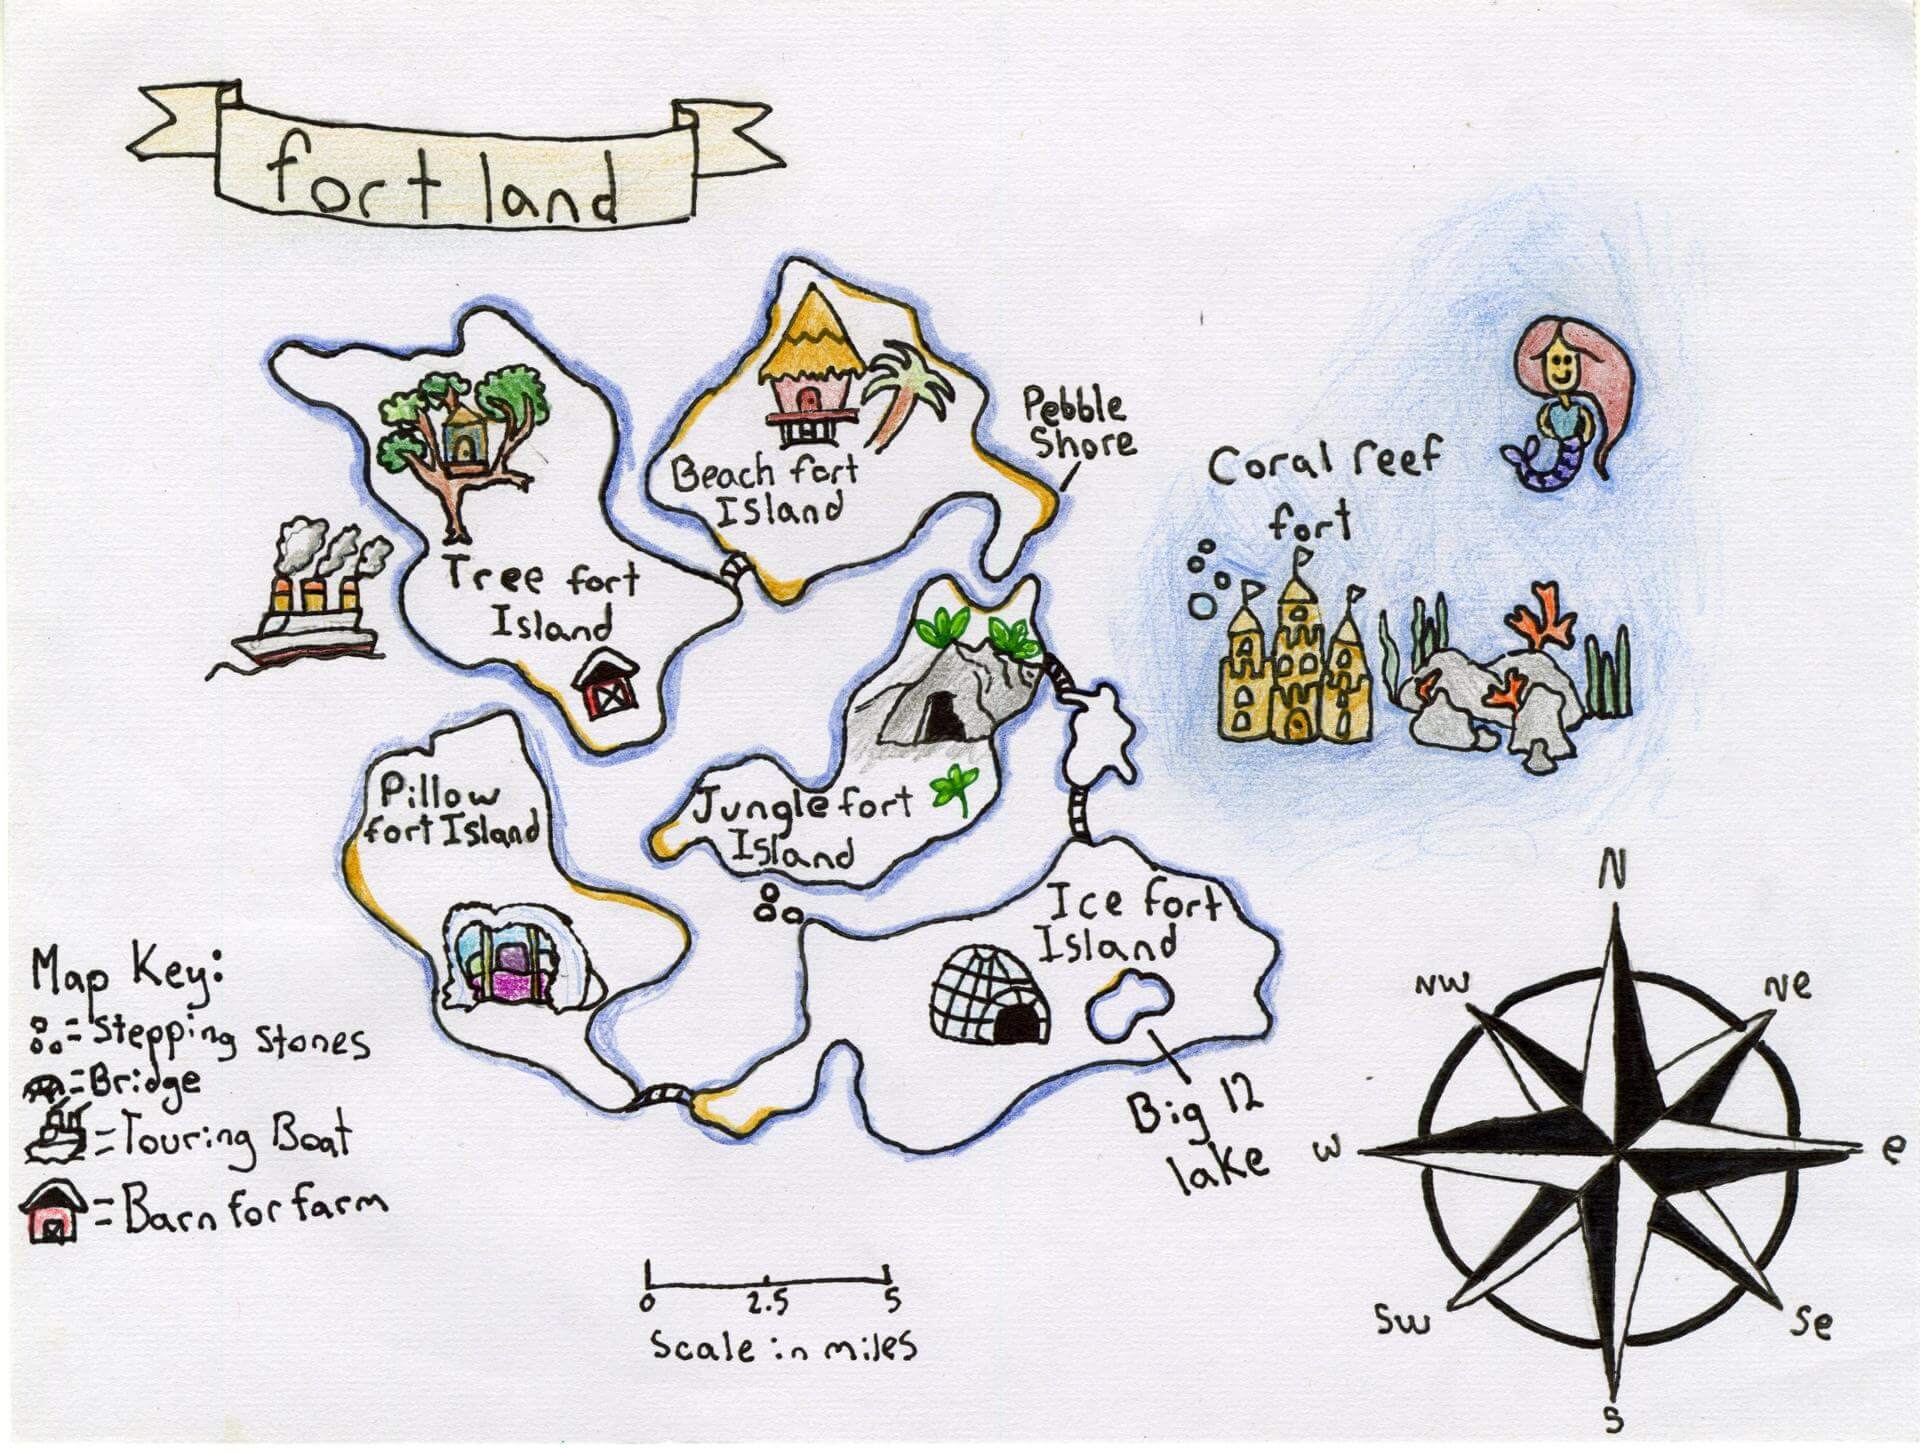 fort land
Pebble
Shore
Beach fort
Island
Coral reef
fort
Tree fort
Island
Pillow
fort Island
Jungle fort
Island
Ice fort
Island
Big 12
lake
Map Key:
= Stepping Stones
= Bridge
= Touring Boat
= Barn for farm
N
NW
Ne
W
e
SW
Se
S
0 2.5 5
Scale in miles